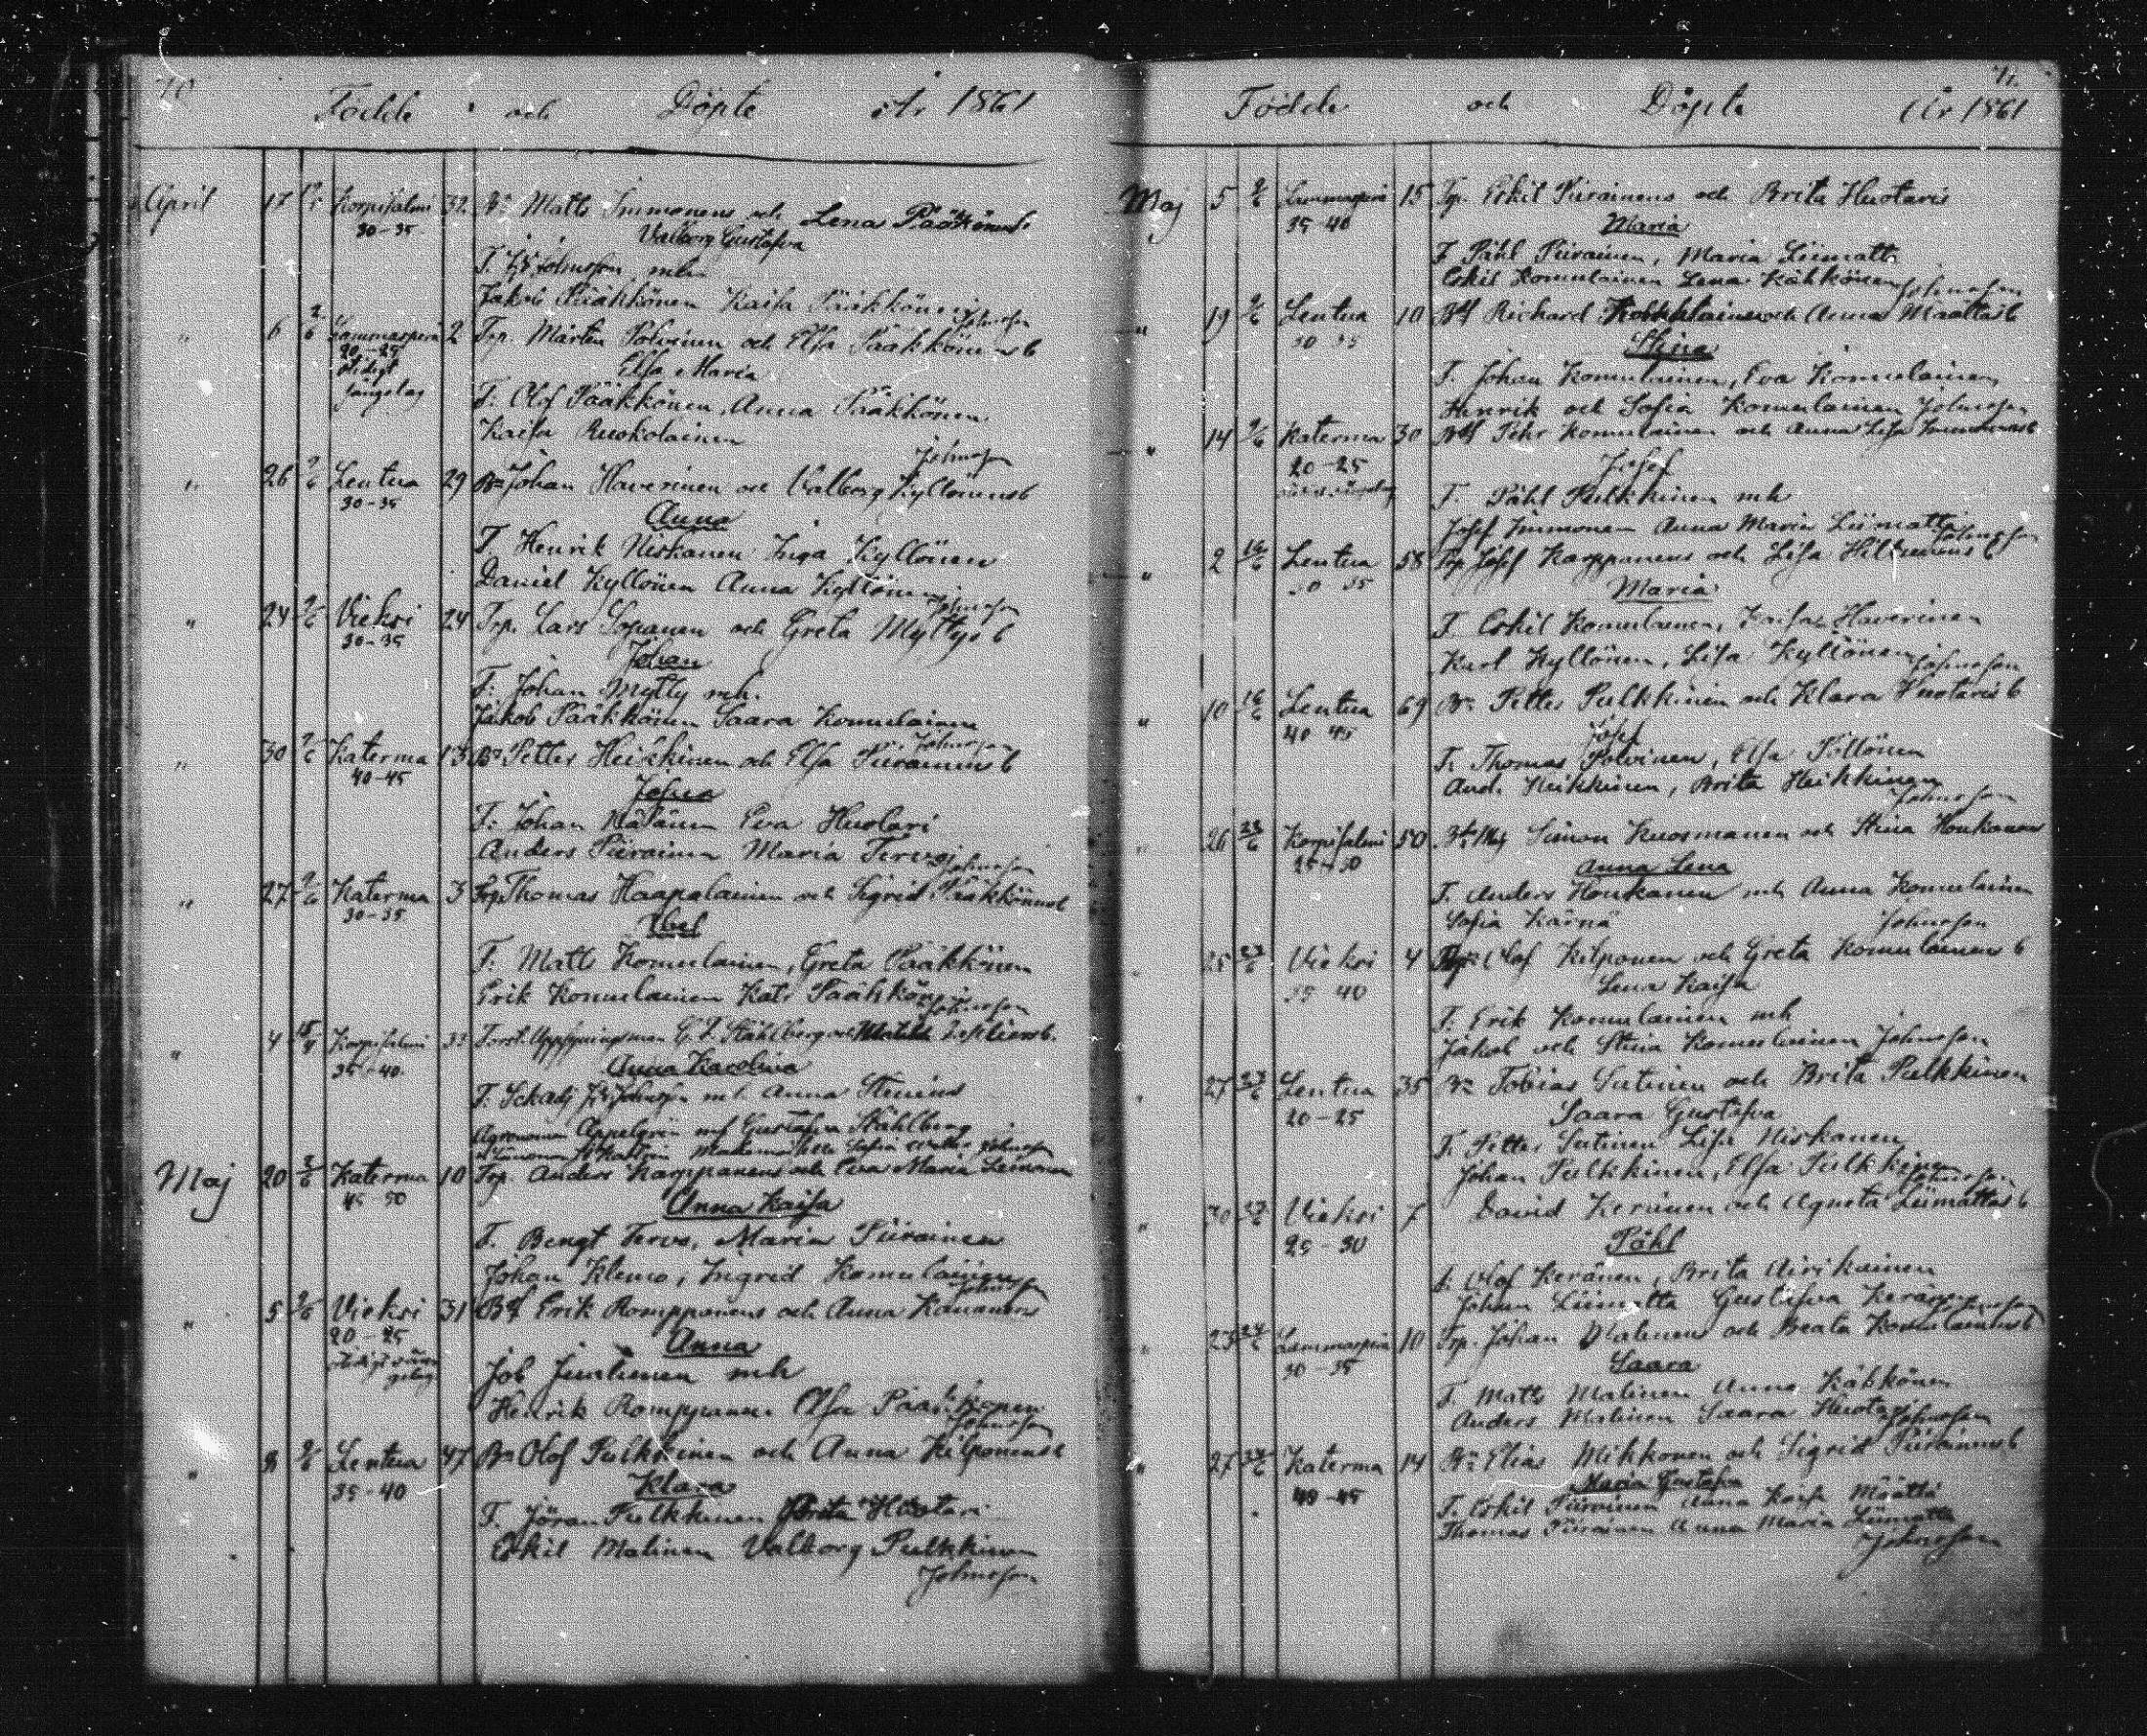 70
Födde och Döpte År 1861
April 17 Korpisalmi 32 Bn Matts Immonens och Lena Pääkkönens
30-35 Valborg Gustafva
F. Johnsson mh
Jakob Pääkkönen Kaisa Pääkkönen
Johnsson
" 6 2/6 Lammasperä 2 Trp. Mårten Polvinen och Elsa Pääkkönens b
20-25 Elsa Maria
F: Olof Pääkkönen, Anna Pääkkönen
Kaisa Ruokolainen
Johnsson
" 26 2/6 Lentua 29 Bn Johan Haverinen och Valborg Kyllönens b
30-35 Anna
F. Henrik Niskanen Inga Kyllönen
Daniel Kyllönen Anna Kyllönen
Johnsson
" 24 2/6 Vieksi 24 Trp. Lars Sopanen och Greta Myttys b
30-35 Johan
F: Johan Mytty mh.
Jakob Pääkkönen Saara Komulainen
Johnsson
" 30 2/6 Katerma 13 Bn Petter Heikkinen och Elsa Piirainens b
40-45 Josua
F: Johan Eva Huotari
Anders Piirainen Maria Tervo
Johnsson
" 27 2/6 Katerma 3 Trp Thomas Haapalainen och Sigrid Pääkkönens b
30-35 Abel
F: Matts Komulainen, Greta Pääkkönen
Erik Komulainen Katr Pääkkönen
Johnsson
" 4 15/4 Korpisalmi 33 Forst. Uppsyningsman Ståhlberg och Matilda b.
35-40 Anna Karolina
F. Johnsson Anna Stenius
Agronomen Appelgren Gustafva Ståhlberg
Sofia Johnsson
Maj 20 2/6 Katerma 10 Trp. Anders Karppanens och Eva Maria
45-50 Anna Kaisa
F. Bengt Tervo, Maria Piirainen
Johan Klemo, Ingrid Komulainen
Johnsson
" 5 Vieksi 31 Erik Romppanens och Anna Kananens
20-25 Anna
Job Juntunen mh
Henrik Romppanen Elsa Pääkkönen
Johnsson
" 8 2/6 Lentua 47 Bn Olof Pulkkinen och Anna Kilponens b
35-40 Klara
F. Jöran Pulkkinen Brita Huotari
Eskil Malinen Valborg Pulkkinen
Johnsson
71.
Födde och Döpte År 1861
Maj 5 2/6 Lammasperä 15 Trp. Eskil Piirainens och Brita Huotaris
35-40 Maria
F Påhl Piirainen, Maria Liimatta
Eskil Komulainen Lena Kähkönen
Johnsson
" 19 Lentua 10 Richard och Anna Määttäs b
30 35 Stina
F. Johan Komulainen, Eva Komulainen
Henrik och Sofia Komulainen Johnsson
" 14 Katerma 30 Pehr Komulainen och Anna Lisa Immonens b
20-25 Josef
F. Påhl Pulkkinen mh
Josef Immonen Anna Maria Liimatta
Johnsson
" 2 16/6 Lentua 58 Trp Josef Karppanens och Lisa Hiltunens b
30 35 Maria
F Eskil Komulainen, Kaisa Haverinen
Karl Kyllönen, Lisa Kyllönen
Johnsson
" 10 16/6 Lentua 69 Bn Petter Pulkkinen och Klara Huotaris b
40 45 Josef
F. Thomas Polvinen, Elsa Pöllönen
And. Heikkinen, Brita Heikkinen
Johnsson
" 26 Korpisalmi 50 Simon Kuosmanen och Stina Honkanen
25-30 Anna Lena
F. Anders Honkanen mh Anna Komulainen
Sofia Kärnä Johnsson
" 25 23/6 Vieksi 4 Olof Kilponen och Greta Komulainens b
35 40 Lena Kaisa
F. Erik Komulainen mh
Jakob och Stina Komulainen Johnsson
" 27 23/6 Lentua 35 Bn Tobias Sutinen och Brita Pulkkinen
20-25 Saara Gustafva
F. Petter Sutinen Lisa Niskanen
Johan Pulkkinen, Elsa Pulkkinen
Johnsson
" 30 Vieksi 7 David Keränen och Agneta Liimattas b
25-30 Påhl
F. Olof Keränen, Brita Airikainen
Johan Liimatta Gustafva Keränen
Johnsson
" 23 24/6 Lammasperä 10 Trp. Johan Malinen och Beata Komulainens b
30-35 Saara
F. Matts Malinen Anna Kähkönen
Anders Malinen Saara Huotari
Johnsson
" 27 Katerma 14 Bn Elias Mikkonen och Sigrid Piirainens b
40-45 Maria Gustafva
F. Eskil Piirainen Anna Kaisa Määttä
Thomas Piirainen Anna Maria Liimatta
Johnsson